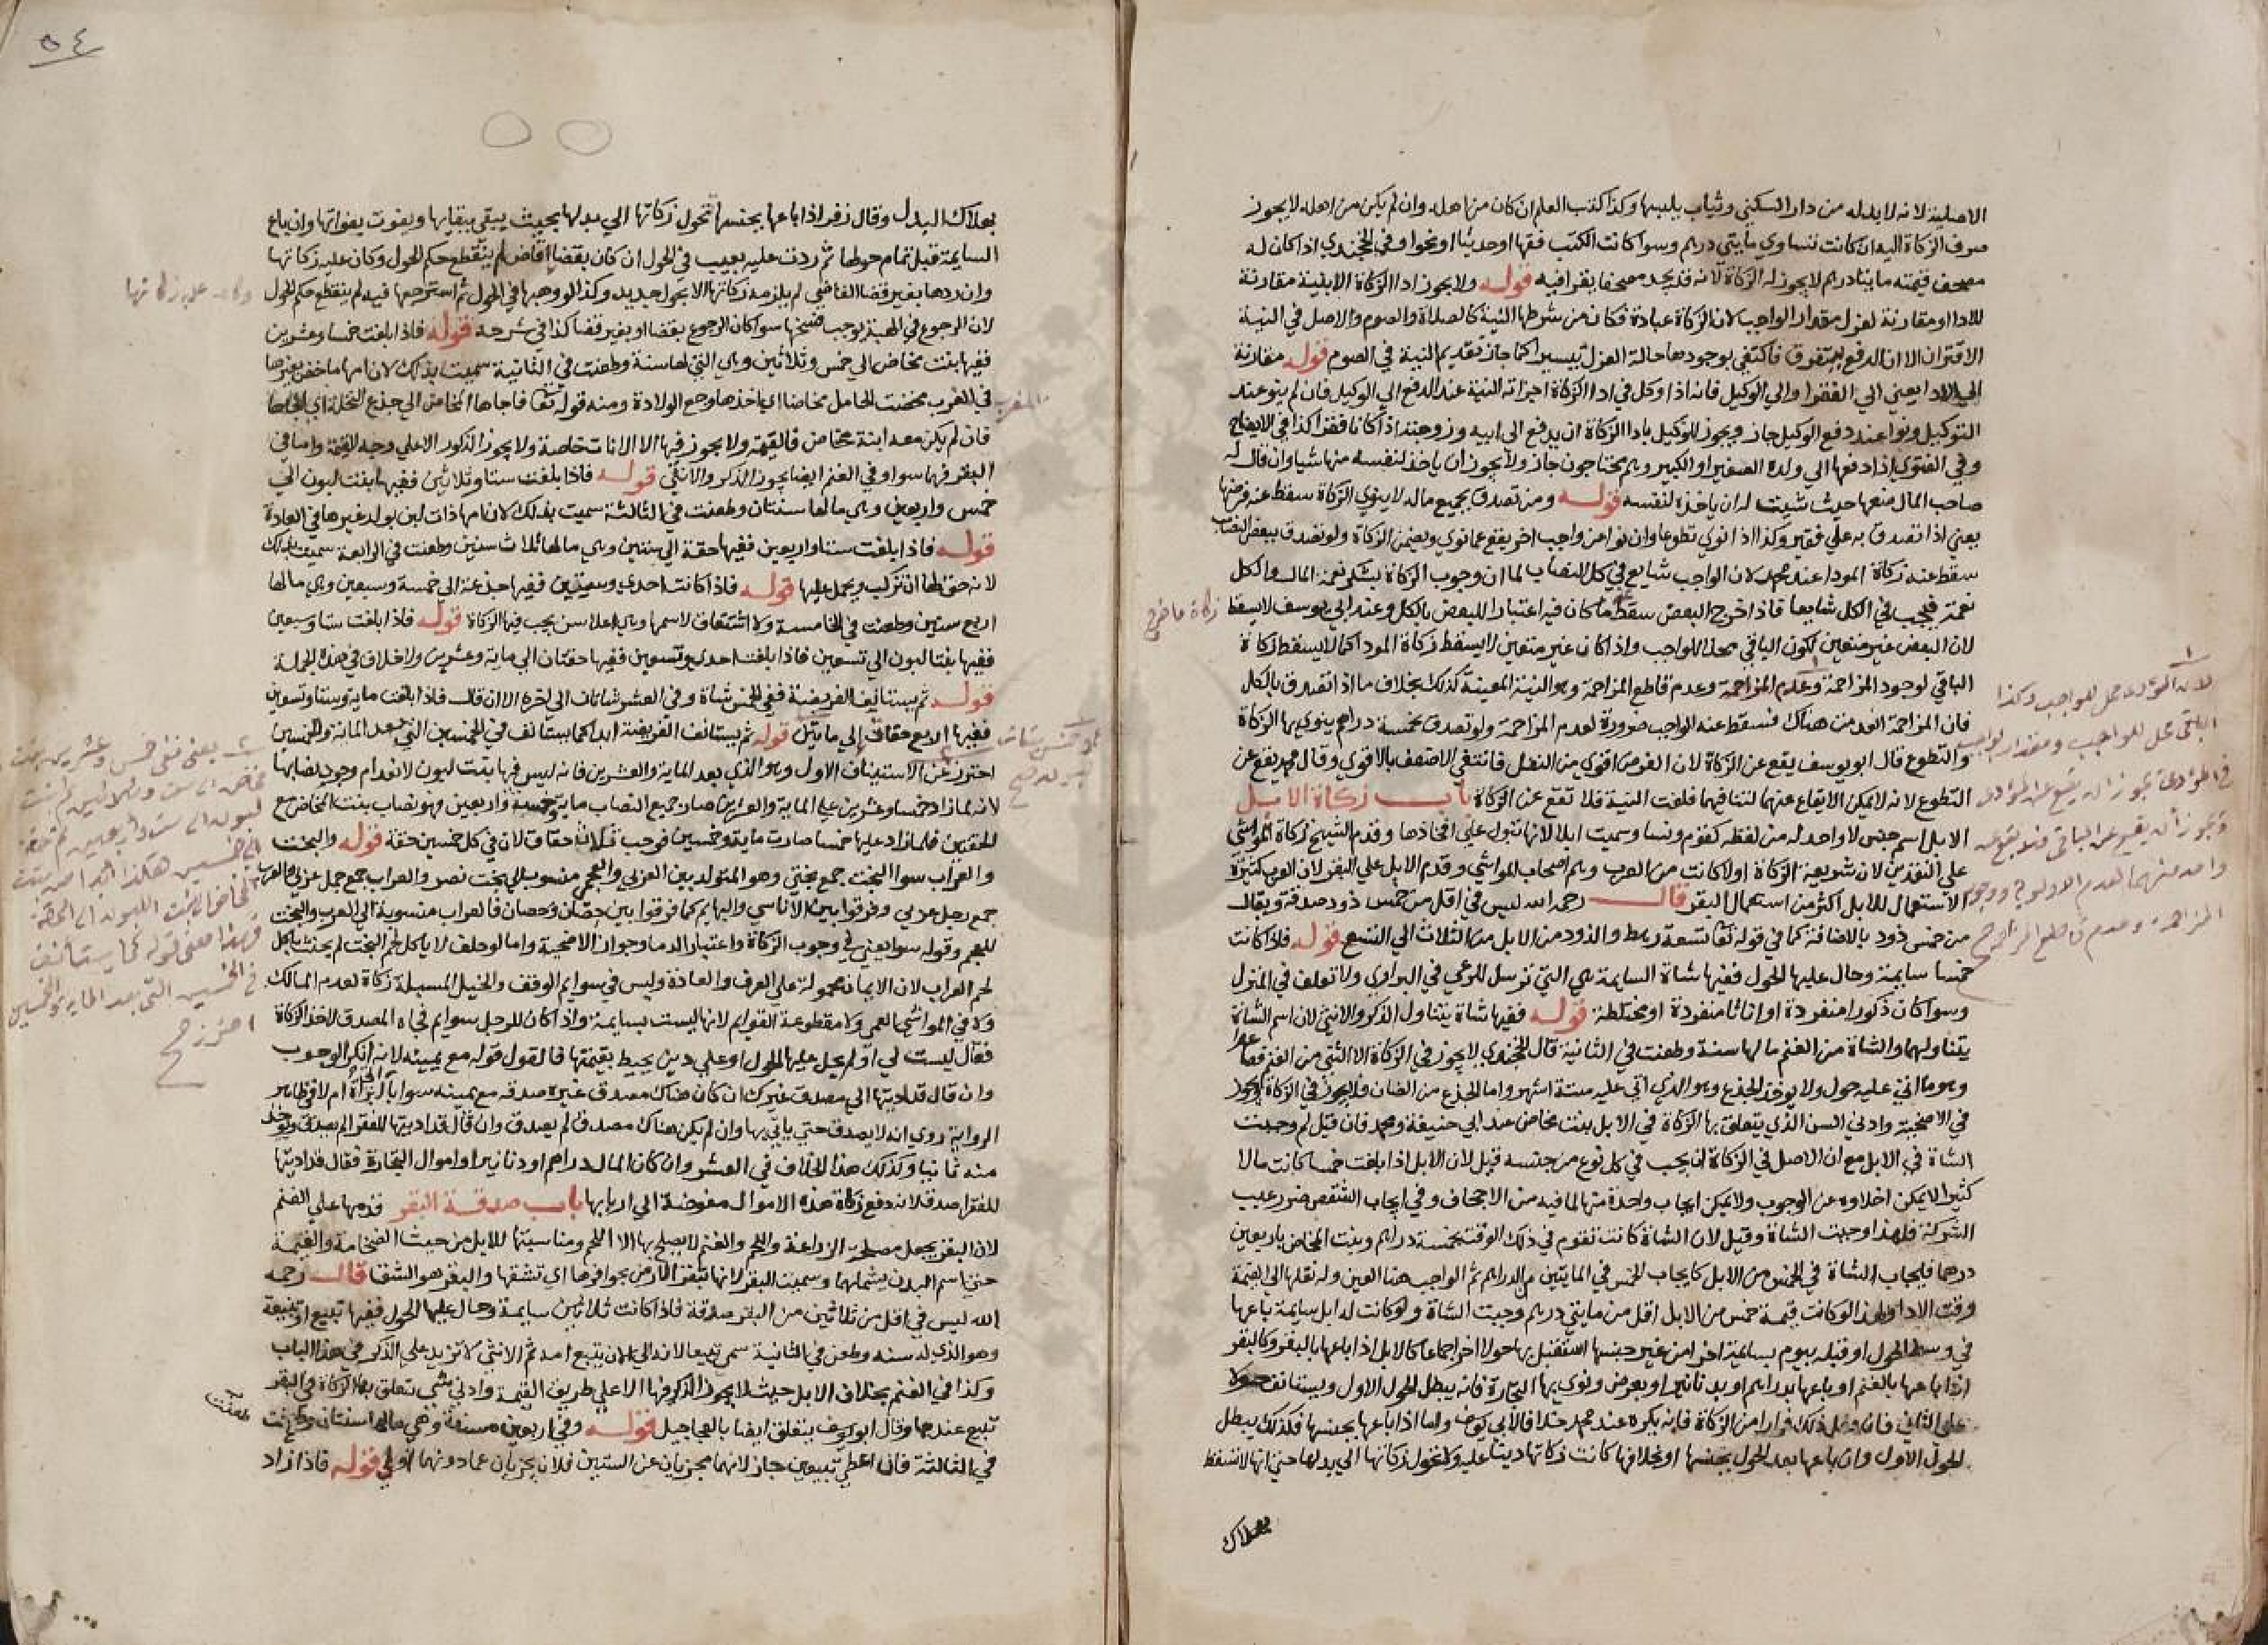 الاصلية لانه لا بد له من دار السكني وثياب يلبسها وكذا كتب العلم ان كان من اهله وان لم يكن من اهله لا يجوز
صرف الزكاة اليه ان كانت تساوي مايتي درهم وسوا كانت الكتب فقها او حديثا او نحوا وفي الخجندي اذا كان له
مصحف قيمته مايتا درهم لا يجوز له الزكاة لانه قد يجد مصحفا يقرا فيه قوله ولا يجوز ادا الزكاة الا بنية مقارنة
للادا او مقارنة لعزل مقدار الواجب لان الزكاة عبادة فكان من شرطها النية كالصلاة والصوم والاصل في النية
الاقتران الا ان الدفع يتفرق فاكتفي بوجودها حالة العزل تيسيرا كما جاز تقديم النية في الصوم قوله مقارنة
للادا يعني الي الفقرا والي الوكيل فانه اذا وكل في ادا الزكاة اجزاته النية عند الدفع الي الوكيل فان لم ينو عند
التوكيل ونوا عند دفع الوكيل جاز ويجوز للوكيل بادا الزكاة ان يدفع الي ابيه وزوجته اذا كانا فقرا كذا في الايضاح
وفي الفتوي اذا دفعها الي ولده الصغير او الكبير وهم محتاجون جاز ولا يجوز ان ياخذ لنفسه منها شيا وان قال له
صاحب المال ضعها حيث شيت له ان ياخذ لنفسه قوله ومن تصدق بجميع ماله لا ينوي الزكاة سقط عنه فرضها
يعني اذا تصدق به علي فقير وكذا اذا نوي تطوعا وان نوا عن واجب اخر يقع عما نوي ويضمن الزكاة ولو تصدق ببعض النصاب
سقط عنه زكاة المودا عند محمد لان الواجب شايع في كل النصاب لما ان وجوب الزكاة لشكر نعمة المال والكل
نعمة فيجب في الكل شايعا فاذا اخرج البعض سقط ما كان فيه اعتبارا للبعض بالكل وعند ابي يوسف لا يسقط
لان البعض غير متعين لكون الباقي محلا للواجب واذا كان غير متعين لا يسقط زكاة المودا كما لا يسقط زكاة
الباقي لوجود المزاحمة وعدم المزاحمة وعدم قاطع المزاحمة وهو النية المعينة كذلك بخلاف ما اذا تصدق بالكل
فان المزاحمة انعدمت هناك فسقط عنه الواجب ضرورة لعدم المزاحمة ولو تصدق بخمسة دراهم ينوي بها الزكاة
والتطوع قال ابو يوسف يقع عن الزكاة لان الفرض اقوي من النفل فانتفي الاضعف بالاقوي وقال محمد يقع عن
التطوع لانه لا يمكن الايقاع عنهما لتنافيهما فلغت النية فلا تقع عن الزكاة باب زكاة الابل
الابل اسم جنس لا واحد له من لفظه كقوم ونسا وسميت ابلا لانها تبول علي افخاذها وقدم الشيخ زكاة المواشي
علي النقدين لان شريعة الزكاة اولا كانت من العرب وهم اصحاب المواشي وقدم الابل علي البقر لان العرب كثيرة
الاستعمال للابل اكثر من استعمال البقر قال رحمه الله ليس في اقل من خمس ذود صدقة ويقال
من خمس ذود بالاضافة كما في قوله تعا تسعة رهط والذود من الابل من الثلاث الي التسع قوله فاذا كانت
خمسا سايمة وحال عليها الحول ففيها شاة السايمة هي التي ترسل للرعي في البراري ولا تعلف في المنزل
وسوا كان ذكورا منفردة او اناثا منفردة او مختلطة قوله ففيها شاة يتناول الذكر والانثي لان اسم الشاة
يتناولهما والشاة من الغنم ما لها سنة وطعنت في الثانية قال الخجندي لا يجوز في الزكاة الا الثني من الغنم فصاعدا
وهو ما اتي عليه حول ولا يوخذ الجذع وهو الذي اتي عليه ستة اشهر واما الجذع من الضان فلا يجوز في الزكاة ويجوز
في الاضحية وادني السن الذي يتعلق بها الزكاة في الابل بنت مخاض عند ابي حنيفة ومحمد فان قيل لم وجبت
الشاة في الابل مع ان الاصل في الزكاة ان يجب في كل نوع من جنسه قيل لان الابل اذا بلغت خمسا كانت مالا
كثيرا لا يمكن اخلاوه عن الوجوب ولا يمكن ايجاب واحدة منها لما فيه من الاجحاف وفي ايجاب الشقص ضرر عيب
الشركة فلهذا وجبت الشاة وقيل لان الشاة كانت تقوم في ذلك الوقت بخمسة دراهم وبنت المخاض باربعين
درهما فايجاب الشاة في الخمس من الابل كايجاب الخمس في المايتين من الدراهم ثم الواجب هنا العين وله نقلها الي القيمة
وقت الادا ولهذا لو كانت قيمة خمس من الابل اقل من مايتي درهم وجبت الشاة ولو كانت له ابل سايمة باعها
في وسط الحول او قبله بيوم بسايمة اخرا من غير جنسها استقبل بها حولا اخر اجماعا كالابل اذا باعها بالبقر وكالبقر
اذا باعها بالغنم او باعها بدراهم او بدنانير او بعرض ونوي بها التجارة فانه يبطل الحول الاول ويستانف حولا
علي الثاني فان فعل ذلك فرارا من الزكاة فانه يكره عند محمد خلافا لابي يوسف واما اذا باعها بجنسها فكذلك يبطل
الحول الاول وان باعها بعد الحول بجنسها او بخلافها كانت زكاتها دينا عليه ولا تحول زكاتها الي بدلها حتي انها لا تسقط
بهلاك
زكاة ما خرج
٥٤
بهلاك البدل وقال زفر اذا باعها بجنسها تحول زكاتها الي بدلها بحيث يبقي ببقايها ويفوت بفواتها وان باع
السايمة قبل تمام حولها ثم ردت عليه بعيب في الحول ان كان بقضا قاض لم ينقطع حكم الحول وكان عليه زكاتها
وان ردها بغير قضا القاضي لم يلزمه زكاتها الا بحول جديد وكذا لو وهبها في الحول ثم استرجعها فيه لم ينقطع حكم الحول
لان الرجوع في الهبة يوجب فسخها سوا كان الرجوع بقضا او بغير قضا كذا في شرحه قوله فاذا بلغت خمسا وعشرين
ففيها بنت مخاض الي خمس وثلاثين وهي التي لها سنة وطعنت في الثانية سميت بذلك لان امها ماخض بغيرها
في المغرب مخضت الحامل مخاضا اي اخذها وجع الولادة ومنه قوله تعا فاجاها المخاض الي جذع النخلة اي الجاها
فان لم يكن معه ابنة مخاض فالقيمة ولا يجوز فيها الا الاناث خاصة ولا يجوز الذكور الا علي وجه القيمة واما في
البقر فهما سوا وفي الغنم ايضا يجوز الذكر والانثي قوله فاذا بلغت ستا وثلاثين ففيها بنت لبون الي
خمس واربعين وهي ما لها سنتان وطعنت في الثالثة سميت بذلك لان امها ذات لبن بولد غيرها في العادة
قوله فاذا بلغت ستا واربعين ففيها حقة الي ستين وهي ما لها ثلاث سنين وطعنت في الرابعة سميت بذلك
لانه حق لها ان تركب ويحمل عليها قوله فاذا كانت احدي وستين ففيها جذعة الي خمسة وسبعين وهي ما لها
اربع سنين وطعنت في الخامسة ولا اشتقاق لاسمها وهي اعلا سن يجب فيها الزكاة قوله فاذا بلغت ستا وسبعين
ففيها بنتا لبون الي تسعين فاذا بلغت احدي وتسعين ففيها حقتان الي ماية وعشرين ولا خلاف في هذه الجملة
قوله ثم يستانف الفريضة ففي الخمس شاة وفي العشر شاتان الي اخره الا ان قال فاذا بلغت ماية وستا وتسعين
ففيها الاربع حقاق الي مايتين قوله ثم يستانف الفريضة ابدا كما يستانف في الخمسين التي بعد الماية والخمسين
احترز عن الاستيناف الاول وهو الذي بعد الماية والعشرين فانه ليس فيها بنت لبون لانعدام وجود نصابها
لانه لما زاد خمسا وعشرين علي الماية والعشرين صار جميع النصاب ماية وخمسة واربعين وهو نصاب بنت المخاض مع
الحقتين فلما زاد عليها خمسا صارت ماية وخمسين فوجب ثلاث حقاق لان في كل خمسين حقة قوله والبخت
والعراب سوا البخت جمع بختي وهو المتولد بين العربي والعجمي منسوب الي بخت نصر والعراب جمع جمل عربي والعرب
جمع رجل عربي وفرقوا بين الاناسي والبهايم كما فرقوا بين حصان وحصان فالعراب منسوبة الي العرب والبخت
للعجم وقوله سوا يعني في وجوب الزكاة واعتبار الدما وجواز الاضحية واما لو حلف لا ياكل لحم البخت لم يحنث باكل
لحم العراب لان الايمان محمولة علي العرف والعادة وليس في سوايم الوقف والخيل المسبلة زكاة لعدم المالك
ولا في المواشي العمي ولا مقطوعة القوايم لانها ليست بسايمة واذا كان للرجل سوايم فجاه المصدق لاخذ الزكاة
فقال ليست لي او لم يحل عليها الحول او علي دين يحيط بقيمتها فالقول قوله مع يمينه لانه انكر الوجوب
وان قال قد اديتها الي مصدق غيرك ان كان هناك مصدق غيره صدقه مع يمينه سوا اتي بالبراة ام لا في ظاهر
الرواية روي انه لا يصدق حتي ياتي بها وان لم يكن هناك مصدق لم يصدق وان قال قد اديتها للفقرا لم يصدق وتوخذ
منه ثانيا وكذلك هذا الخلاف في العشر وان كان المال دراهم او دنانير او اموال التجارة فقال قد اديتها
للفقرا صدق لانه دفع زكاة هذه الاموال مفوضة الي اربابها باب صدقة البقر قدمها علي الغنم
لان البقر يحصل مصلحة الزراعة واللحم والغنم لا يصلح بها الا اللحم ومناسبتها للابل من حيث الضخامة والقيمة
حتي اسم البدن يشملهما وسميت البقر لانها تبقر الارض بحوافرها اي تشقها والبقر هو الشق قال رحمه
الله ليس في اقل من ثلاثين من البقر صدقة فاذا كانت ثلاثين سايمة وحال عليها الحول ففيها تبيع او تبيعة
وهو الذي له سنه وطعن في الثانية سمي تبيعا لانه الي الان يتبع امه ثم الانثي لا تزيد علي الذكر في هذا الباب
وكذا في الغنم بخلاف الابل حيث لا يجوز الذكر فيها الا علي طريق القيمة وادني شي تتعلق به الزكاة في البقر
تبيع عندهما وقال ابو يوسف يتعلق ايضا بالعجاجيل قوله وفي اربعين مسنة وهي ما لها سنتان وطعنت
في الثالثة فان اعطي تبيعين جاز لانهما يجزيان عن الستين فلان يجزيان عما دونها اولي قوله فاذا زاد
وكان عليه زكاتها
المغرب
طعنت